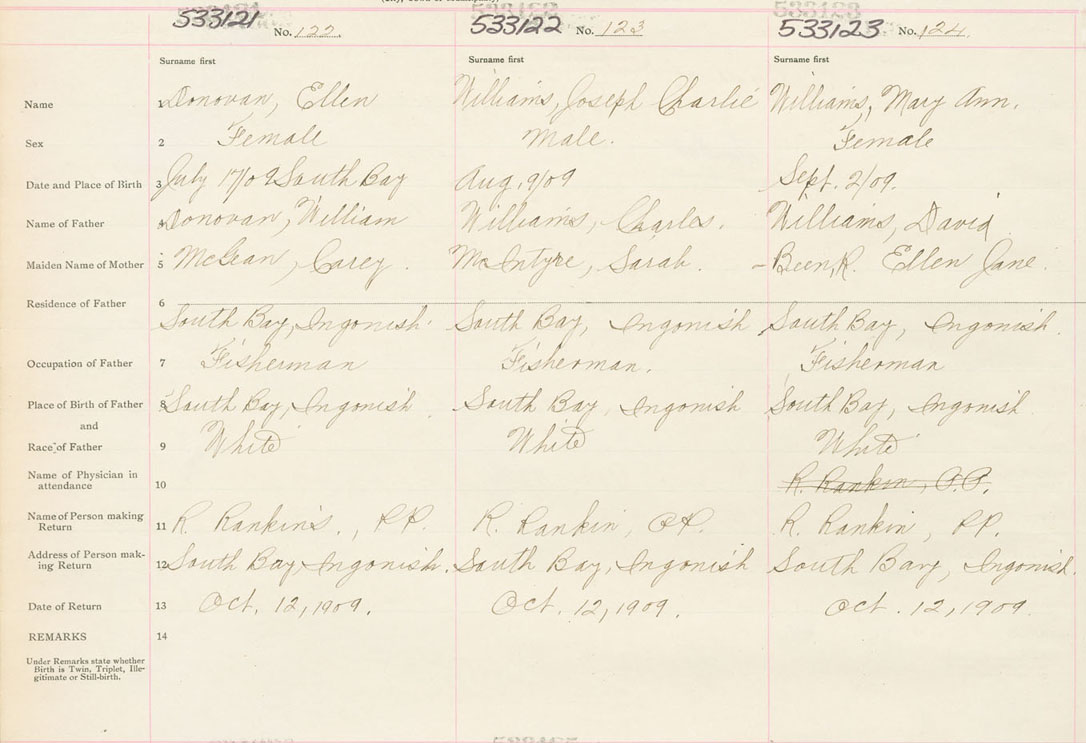 533121 No. 122. 533122 No. 123 533123 No. 124.
Surname first Surname first Surname first
Name 1 Donovan, Ellen Williams, Joseph Charlie Williams, Mary Ann.
Sex 2 Female Male. Female
Date and Place of Birth 3 July 17/09 South Bay Aug. 9/09 Sept. 2/09.
Name of Father 4 Donovan, William Williams, Charles. Williams, David
Maiden Name of Mother 5 McLean, Carey. McIntyre, Sarah. Ellen Jane.
Residence of Father 6
South Bay, Ingonish. South Bay, Ingonish South Bay, Ingonish.
Occupation of Father 7 Fisherman Fisherman. Fisherman
Place of Birth of Father 8 South Bay, Ingonish. South Bay, Ingonish South Bay, Ingonish.
and
Race of Father 9 White White White
Name of Physician in
attendance 10 R. Rankin, P.P.
Name of Person making
Return 11 R. Rankin's., P.P. R. Rankin, P.P. R. Rankin, P.P.
Address of Person mak-
ing Return 12 South Bay, Ingonish. South Bay, Ingonish South Bay, Ingonish.
Date of Return 13 Oct. 12, 1909. Oct. 12, 1909. Oct. 12, 1909.
REMARKS 14
Under Remarks state whether
Birth is Twin, Triplet, Ille-
gitimate or Still-birth.